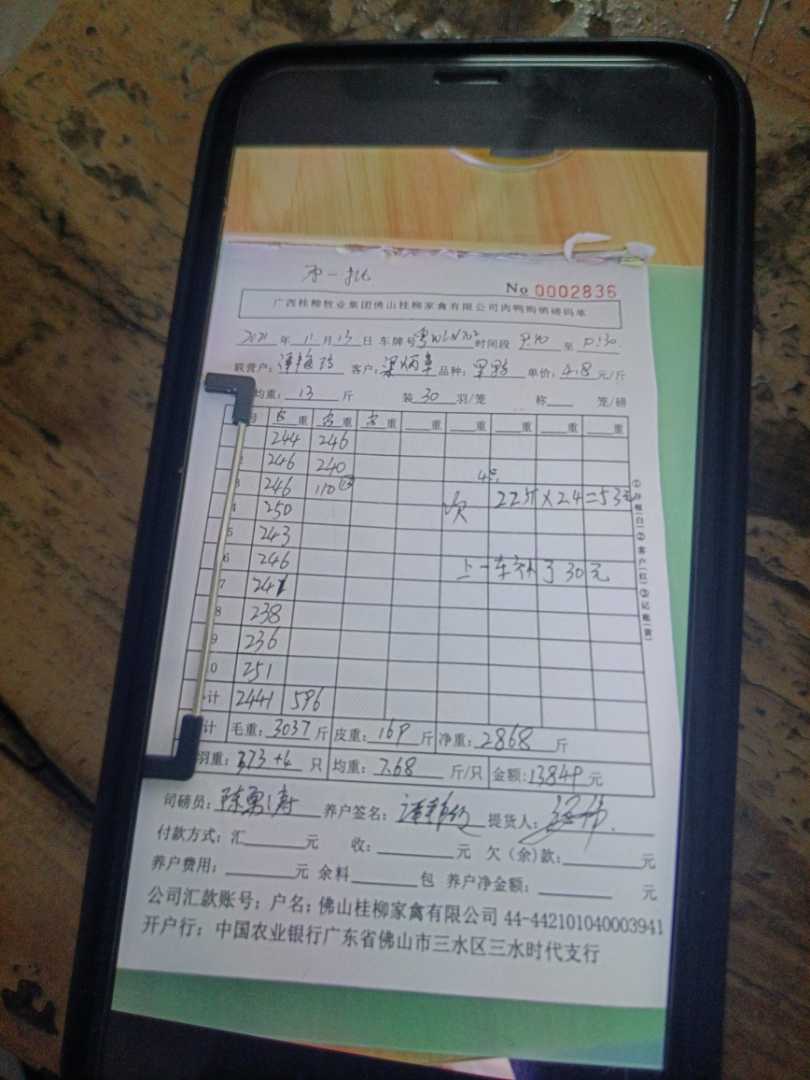 No 0002836
广西桂柳牧业集团佛山桂柳家禽有限公司肉鸭购销磅码单
2021年11月13日 车牌号 时间段 9:40 至 10:30
联营户: 客户:梁炳章 品种: 单价:4.8元/斤
均重:13斤 装30羽/笼 称 笼/磅
号 皮重 毛重 毛重 重 重 重 重 重
244 246
246 240
3 246 110
4 250 次 22斤×2.4=53元
5 243
6 246 上一车补了30元
7 247
8 238
9 236
0 251
计 2441 596
计 毛重:3037斤 皮重:169斤 净重:2868斤
羽重:373+4只 均重:7.68斤/只 金额:13849元
司磅员: 养户签名: 提货人:
付款方式:汇 元 收: 元 欠(余)款: 元
养户费用: 元 余料 包 养户净金额: 元
公司汇款账号:户名:佛山桂柳家禽有限公司 44-442101040003941
开户行:中国农业银行广东省佛山市三水区三水时代支行
①存根(白)②客户(红)③记账(黄)